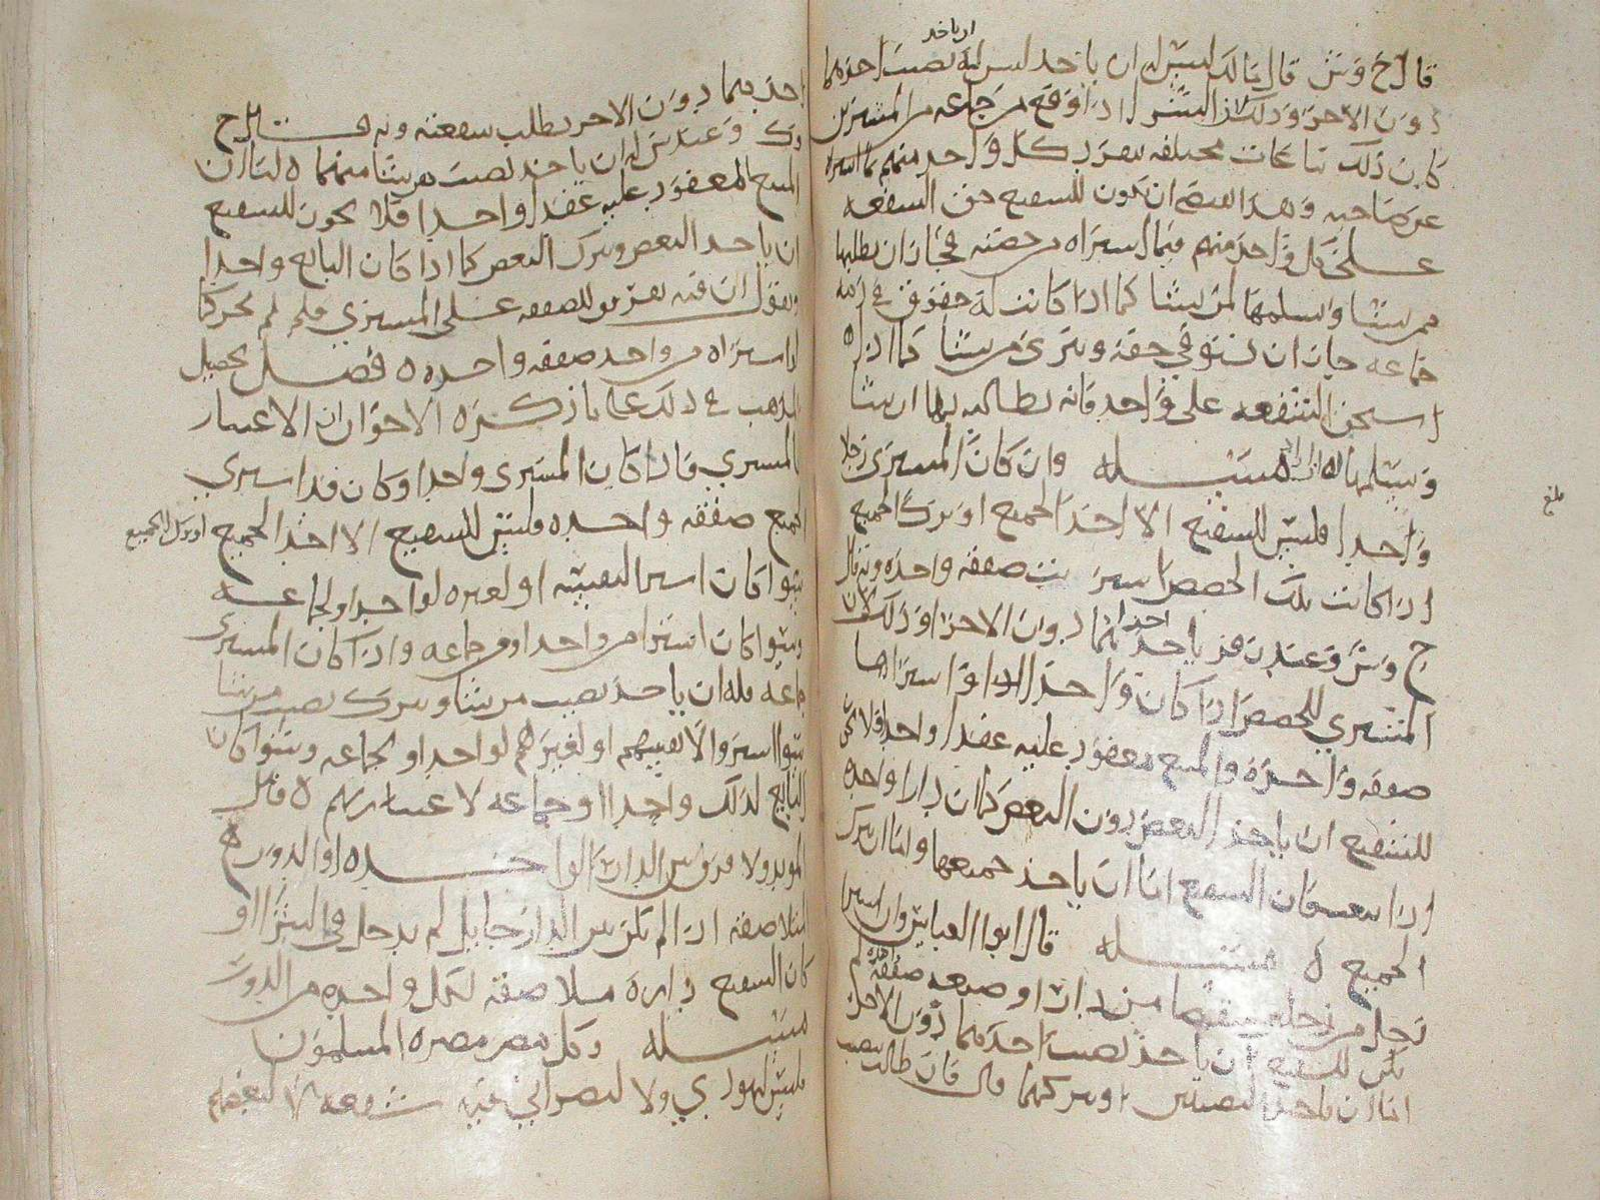 ان ياخذ
قال ح وش قال مالك ليس له ان ياخذ نصيب احدهما
دون الاخر وذلك ان الشرا اذا وقع من جماعه من المشترين
كان ذلك بياعات مختلفه ينفرد كل واحد منهم بما اشتراه
عن صاحبه وهذا يقتضي ان يكون للشفيع حق الشفعه
على كل واحد منهم فيما اشتراه من حصته فجاز ان يطلبها
ممن يشا ويسلمها لمن يشا كما اذا كانت له حقوق في ذمه
جماعه جاز ان يستوفي حقه ويبري من يشا كما اذا
استحق الشفعه على واحد فانه يطالبه بها ان شا
ويسلمها له ان اراد مسئله وان كان المشتري رجلا
واحدا فليس للشفيع الا اخذ الجميع او ترك الجميع
اذا كانت تلك الحصص اشتريت صفقه واحده وبه قال
ح وش وعند ياخذ احدهما دون الاخر وذلك لان
المشتري للحصص اذا كان واحدا اشتراها
صفقه واحده والمبيع معقود عليه عقدا واحدا فلا يكون
للشفيع ان ياخذ البعض دون البعض كما ان دارا واحده
اذا بيعت كان للشفيع اما ان ياخذ جميعها واما ان يترك
الجميع ه مسئله قال ابو العباس وان اشترى
رجل من رجلين نصيبهما من دار او ضيعه صفقه واحده لم
يكن للشفيع ان ياخذ نصيب احدهما دون الاخر
اما ان ياخذ النصيبين او يتركهما قال فان طالب بنصيب
بلغ
احدهما دون الاخر بطلت شفعته وبه قال ح
وك وعند ش له ان ياخذ نصيب من يشا منهما ه لنا ان
المبيع المعقود عليه عقدا واحدا فلا يكون للشفيع
ان ياخذ البعض ويترك البعض كما اذا كان البايع واحدا
ونقول ان فيه تفريق للصفقه على المشتري فلم يجز كما
لو اشتراه من واحد صفقه واحده ه فصل تحصيل
المذهب في ذلك على ما ذكره الاخوان ان الاعتبار
بالمشتري فاذا كان المشتري واحدا وكان قد اشترى
الجميع صفقه واحده فليس للشفيع الا اخذ الجميع او ترك الجميع
سوا كان اشترا لنفسه او لغيره لواحد او لجماعه
وسوا كان اشترا من واحد او من جماعه واذا كان المشتري
جماعه فله ان ياخذ نصيب من يشا ويترك نصيب من يشا
سوا اشتروا لانفسهم او لغيرهم لواحد او لجماعه وسوا كان
البايع لذلك واحدا او جماعه لا اعتبار بهم ه قال
المويد ولا فرق بين الدار الواحده او الدور
المتلاصقه اذا لم يكن بين الدار حايل لم يدخل في الشرا او
كان الشفيع داره ملاصقه لكل واحده من الدور
مسئله وكل مصر مصره المسلمون
فليس ليهودي ولا لنصراني فيه شفعه لا لبعضهم